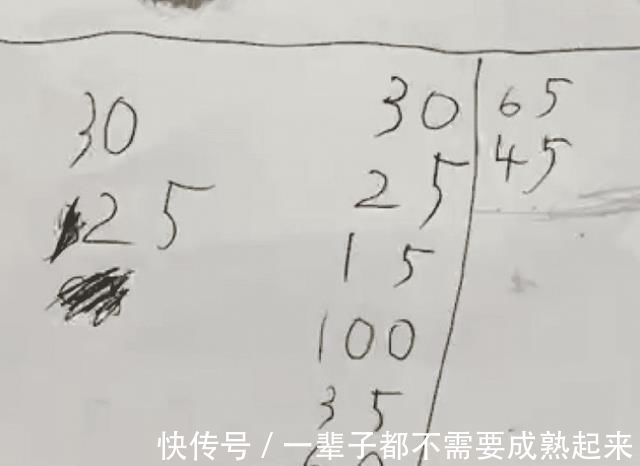 30
25
30
25
15
100
35
65
45
快传号 / 一辈子都不需要成熟起来